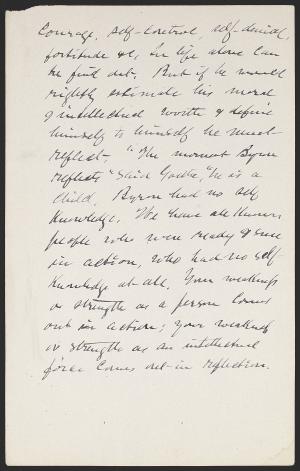 Courage, self-control, self-denial,
fortitude &c, in life alone can
be find out. But if he would
rightly estimate his moral
& intellectual worth & define
himself to himself he must
reflect. "The moment Byron
reflects" said Goethe, "he is a
child." Byron had no self
knowledge. We have all known
people who were ready & sure
in action, who had no self-
knowledge at all. Your weakness
or strength as a person comes
out in action; your weakness
or strength as an intellectual
force comes out in reflection.